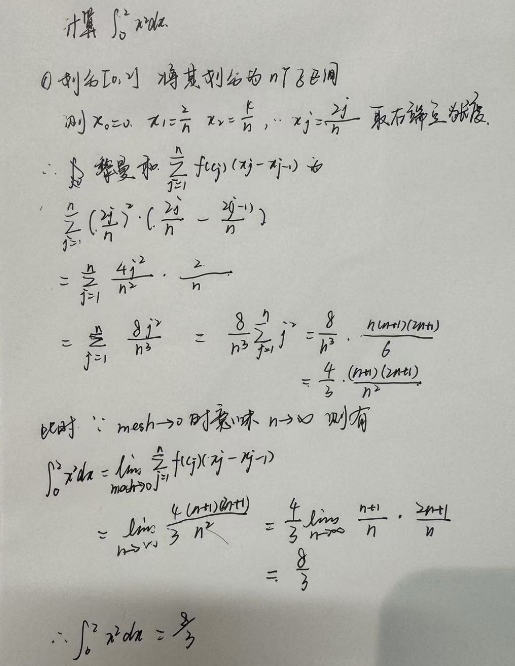 计算 ∫₀² x²dx.
① 划分[0,2] 将其划分为 n个子区间
则 x₀=0. x₁=2/n x₂=4/n, … xⱼ=2j/n 取右端点为高度.
∴ 黎曼和 ∑ⱼ₌₁ⁿ f(cⱼ)(xⱼ-xⱼ₋₁) 为
∑ⱼ₌₁ⁿ (2j/n)² · (2j/n - 2(j-1)/n)
= ∑ⱼ₌₁ⁿ 4j²/n² · 2/n
= ∑ⱼ₌₁ⁿ 8j²/n³ = 8/n³ ∑ⱼ₌₁ⁿ j² = 8/n³ · n(n+1)(2n+1)/6
= 4/3 · (n+1)(2n+1)/n²
此时 ∵ mesh→0 时意味 n→∞ 则有
∫₀² x²dx = lim mesh→0 ∑ⱼ₌₁ⁿ f(cⱼ)(xⱼ-xⱼ₋₁)
= lim n→∞ 4/3 (n+1)(2n+1)/n² = 4/3 lim n→∞ n+1/n · 2n+1/n
= 8/3
∴ ∫₀² x²dx = 8/3